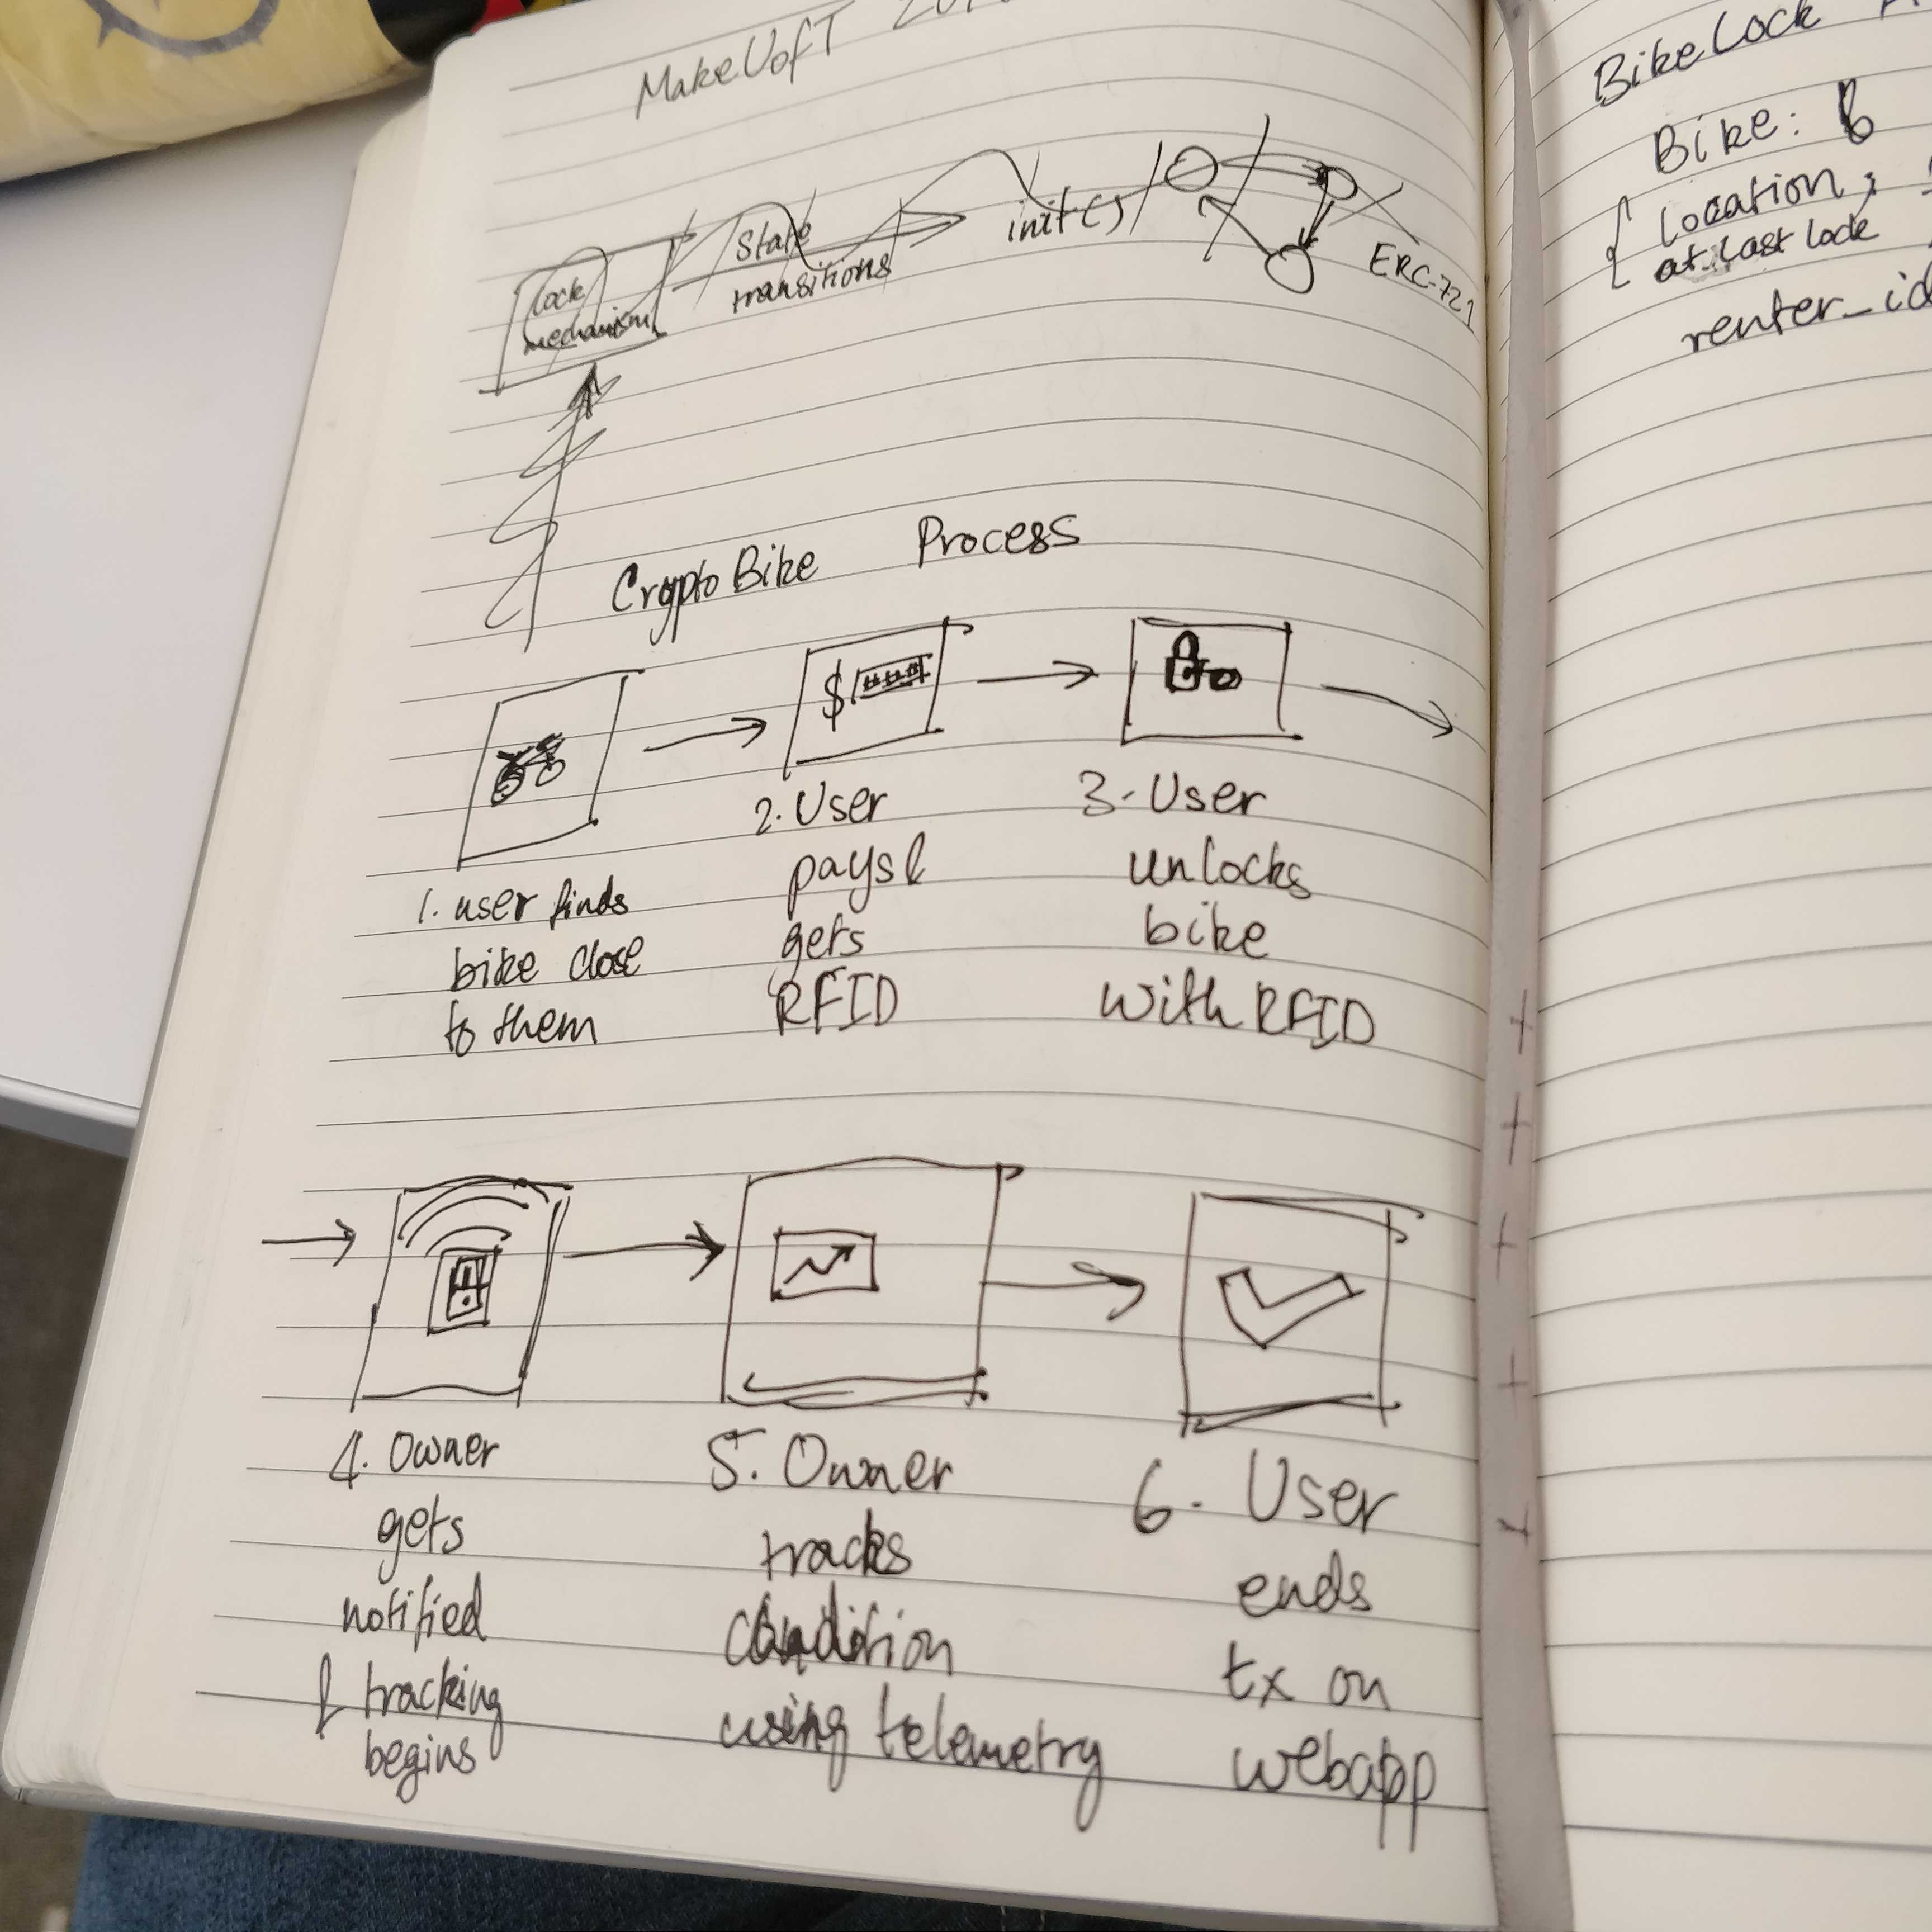 MakeUofT
lock
mechanism
State
transitions
init()
ERC-721
CryptoBike Process
$
1. user finds
bike close
to them
2. User
pays &
gets
RFID
3. User
unlocks
bike
with RFID
4. Owner
gets
notified
& tracking
begins
5. Owner
tracks
condition
using telemetry
6. User
ends
tx on
webapp
BikeLock
Bike:
{ location,
at last lock
renter_id